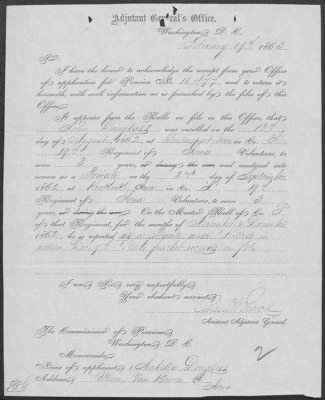 Adjutant General's Office,
Washington, D. C.
February 19th 1863.
Sir:
I have the honor to acknowledge the receipt from your Office
of application for Pension No. and to return it
herewith, with such information as is furnished by the files of
this Office.
It appears from the Rolls on file in this Office, that
John Douglass was enrolled on the
day of August 1862, at in Co.
19th Regiment of Iowa Volunteers, to
serve 3 years, or during the war and mustered into
service as a Private on the day of September
1862, at Keokuk, Iowa in Co. 19th
Regiment of Iowa Volunteers, to serve 3
years, or during the war. On the Muster Roll of Co.
of that Regiment, for the months of November & December
1862, he is reported killed in
action Dec. 7th No further record on file
I am Sir, very respectfully,
Your obedient servant,
Assistant Adjutant General.
The Commissioner of Pensions,
Washington, D. C.
Memoranda:
Name of applicant, Isabella Douglass
Address, Van Buren Co
Iowa
2